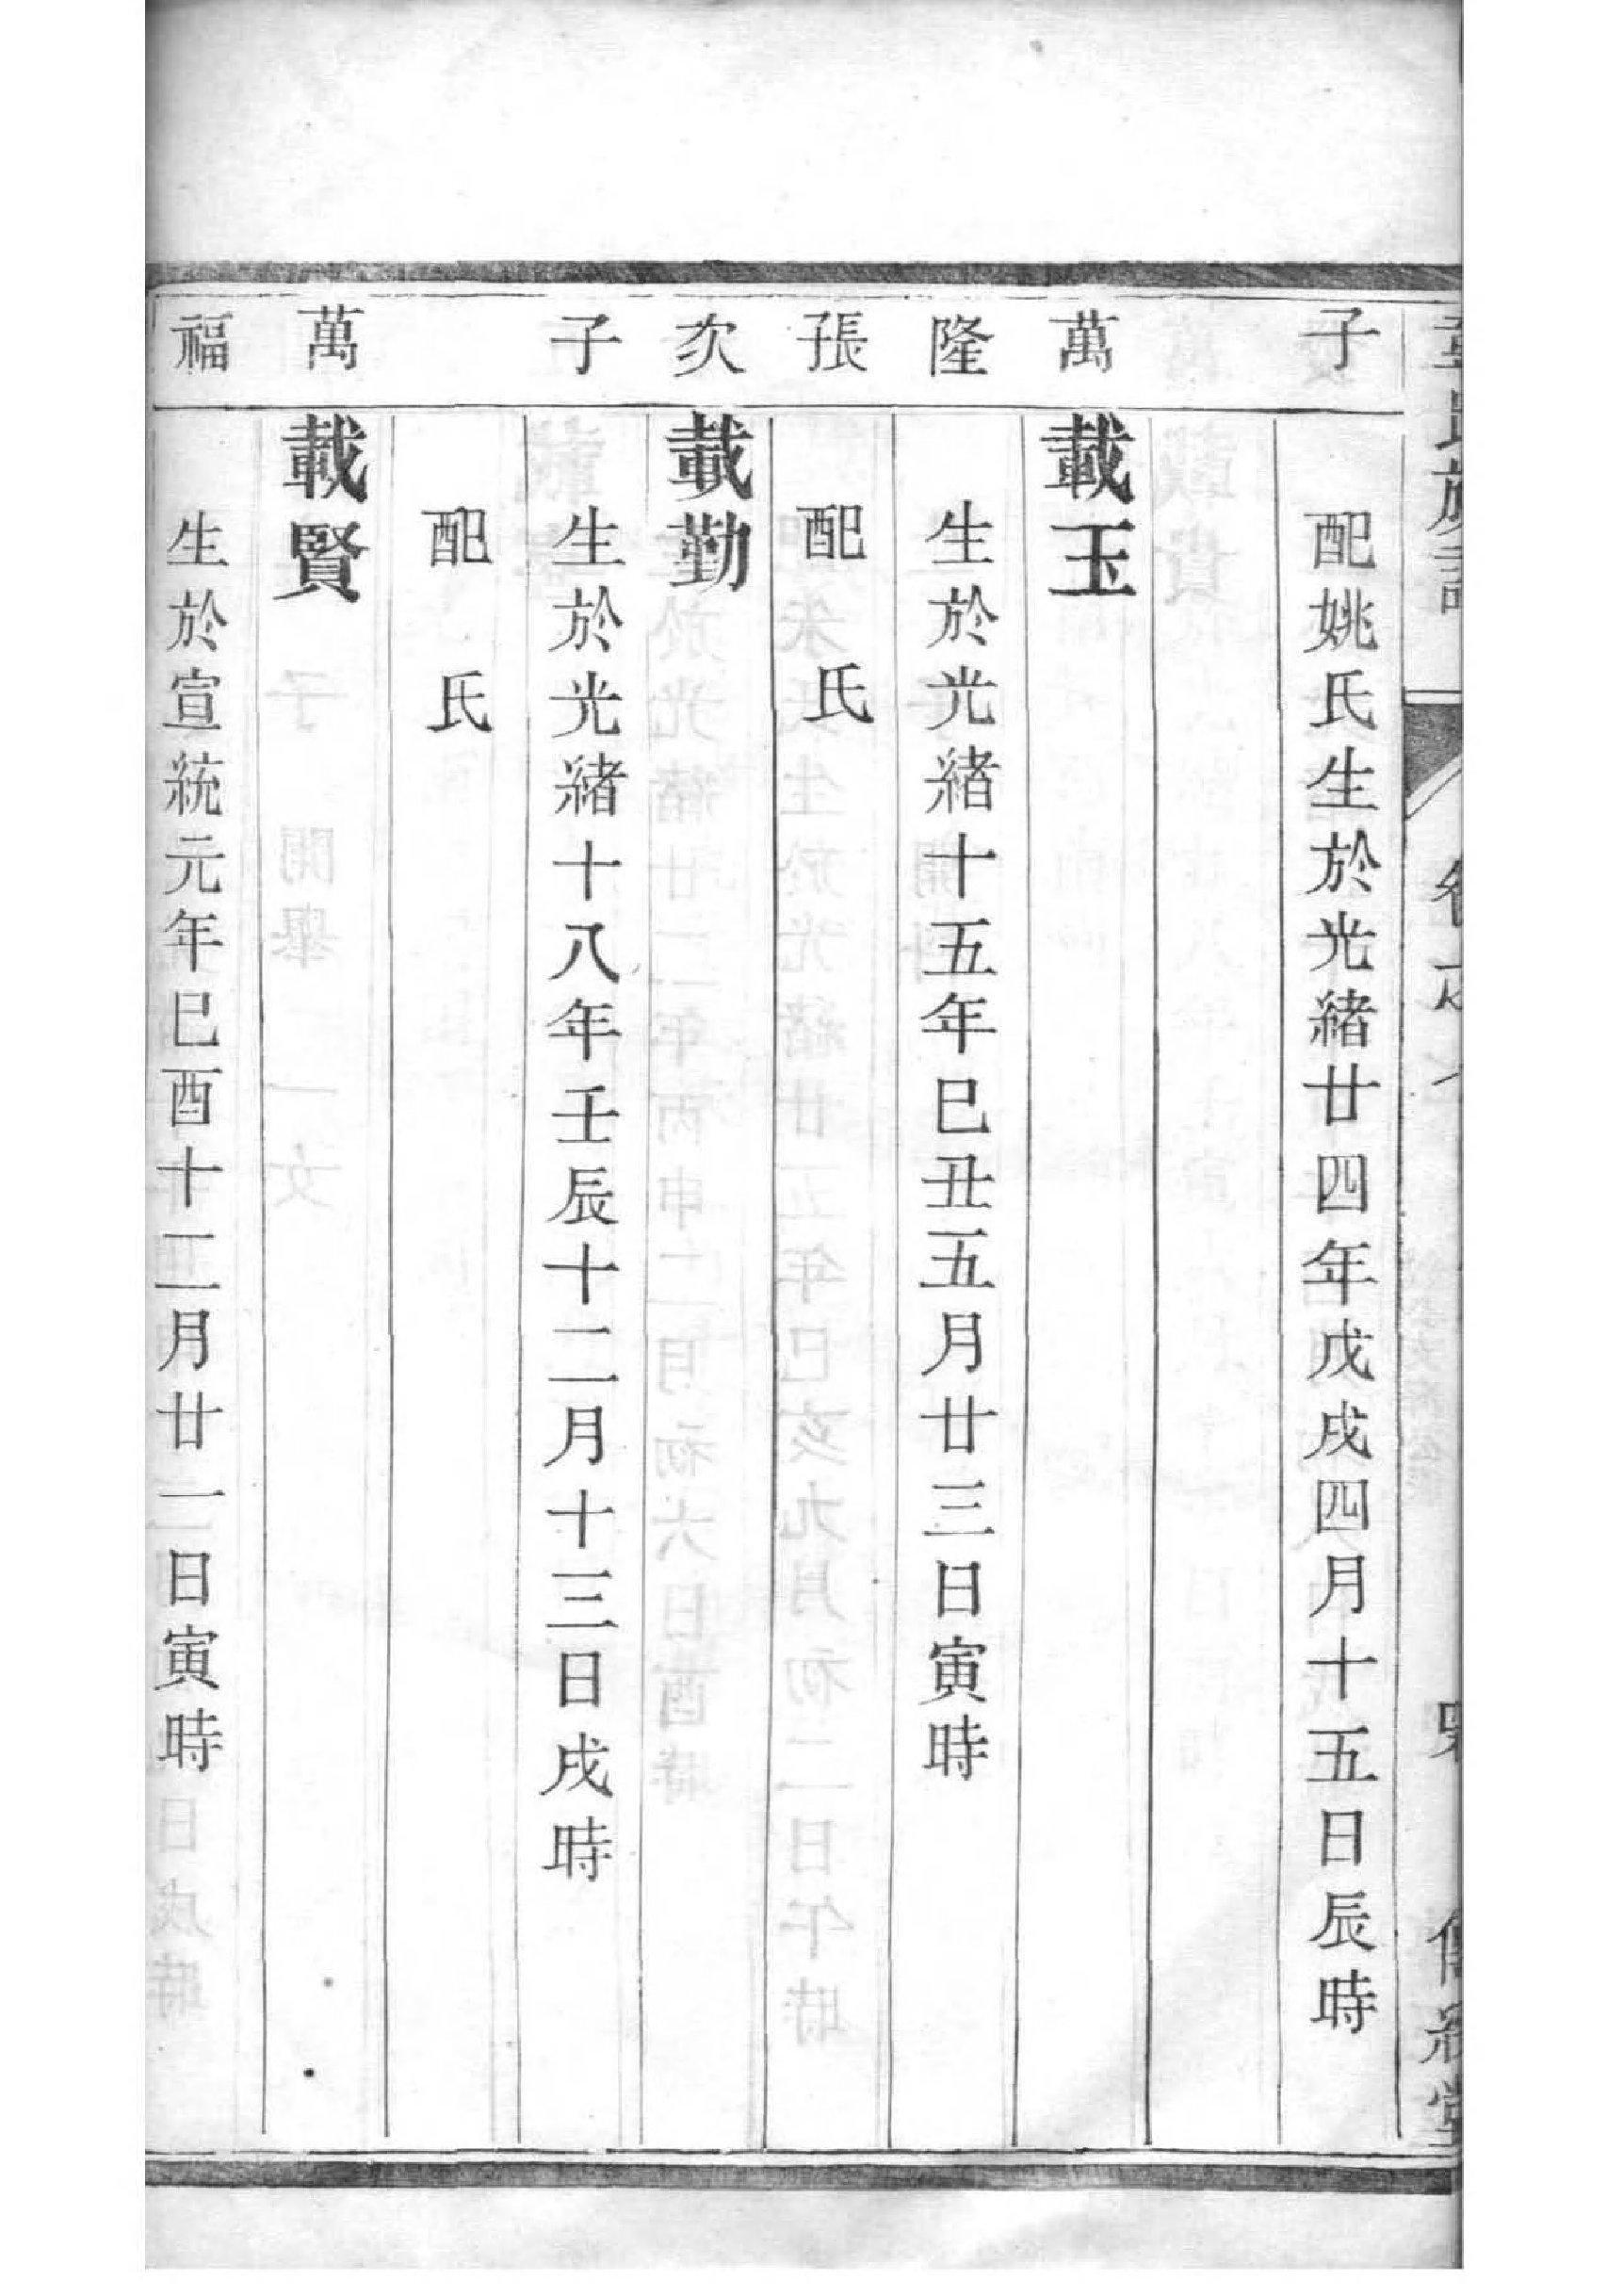 氏族譜
子 配姚氏生於光緒廿四年戊戌四月十五日辰時
萬 載玉
隆 生於光緒十五年巳丑五月廿三日寅時
長子 配 氏
次 載勤
子 生於光緒十八年壬辰十二月十三日戌時
配 氏
萬 載賢
福 生於宣統元年巳酉十二月廿二日寅時